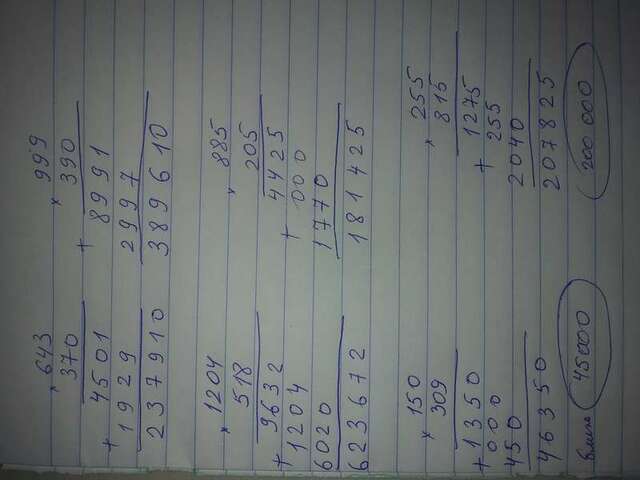 × 643
370
+ 4501
1929
237910
× 999
390
+ 8991
2997
389610
× 1204
518
+ 9632
1204
6020
623672
× 885
205
+ 4425
000
1770
181425
× 150
309
+ 1350
000
450
46350
45000
× 255
815
+ 1275
255
2040
207825
200 000